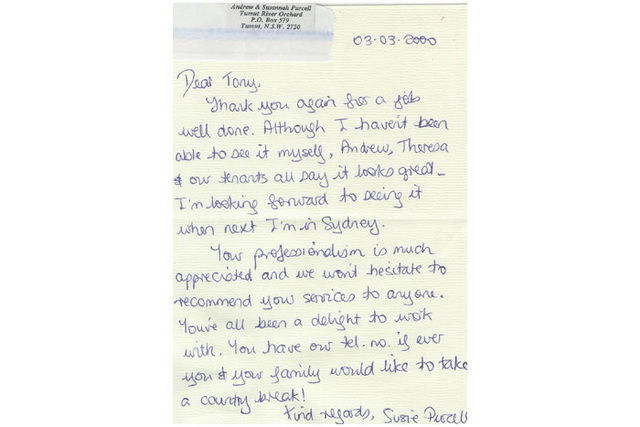 Andrew & Susannah Purcell
Tumut River Orchard
P.O. Box 579
Tumut, N.S.W. 2720
03-03-2000
Dear Tony,
Thank you again for a job
well done. Although I haven't been
able to see it myself, Andrew, Theresa
& our tenants all say it looks great -
I'm looking forward to seeing it
when next I'm in Sydney.
Your professionalism is much
appreciated and we won't hesitate to
recommend your services to anyone.
You've all been a delight to work
with. You have our tel. no. if ever
you & your family would like to take
a country break!
Kind regards, Susie Purcell